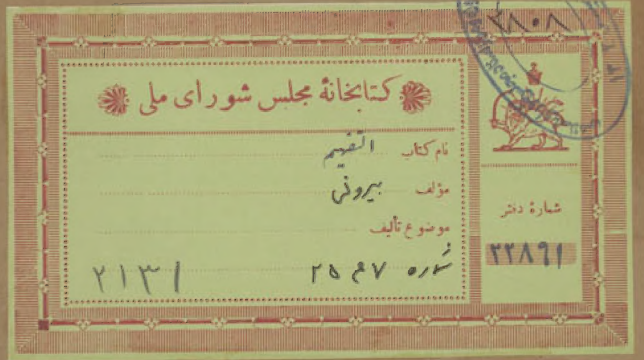 ۳۸۰۸
کتابخانهٔ مجلس شورای ملی
نام کتاب التفهیم
مؤلف بیرونی
موضوع تألیف
شماره ۲۵۴۷
۲۱۳۱
شمارهٔ دفتر
۲۲۸۹۱